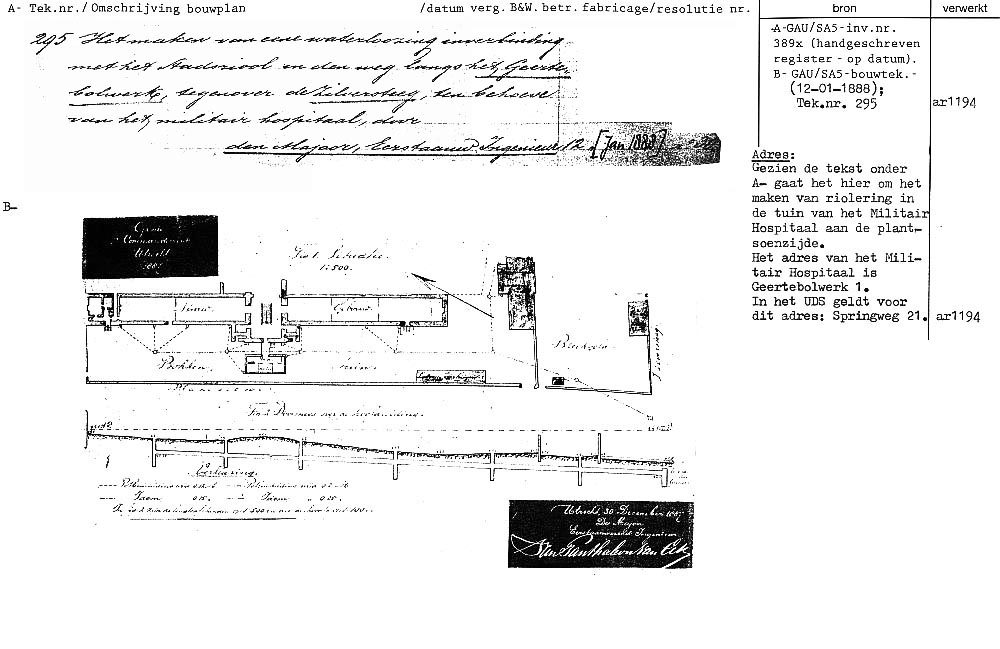 A- Tek.nr./ Omschrijving bouwplan /datum verg. B&W. betr. fabricage/resolutie nr. bron verwerkt
295 Het maken van eene waterloozing in verbinding
met het stadsriool in den weg langs het Geerte-
bolwerk, tegenover de Zilversteeg, ten behoeve
van het militair hospitaal, door
den Majoor, Eerstaanw. Ingenieur 12 [Jan 1888]
A-GAU/SA5-inv.nr.
389x (handgeschreven
register - op datum).
B- GAU/SA5-bouwtek.-
(12-01-1888);
Tek.nr. 295 ar1194
Adres:
Gezien de tekst onder
A- gaat het hier om het
maken van riolering in
de tuin van het Militair
Hospitaal aan de plant-
soenzijde.
Het adres van het Mili-
tair Hospitaal is
Geertebolwerk 1.
In het UDS geldt voor
dit adres: Springweg 21. ar1194
B-
Genie
Commandement
Utrecht
Fig. 1. Situatie.
1:500.
tuin.
Verklaring.
Utrecht, 30 December 1887
De Majoor
Eerstaanwezend Ingenieur
Van Panthaleon van Eck